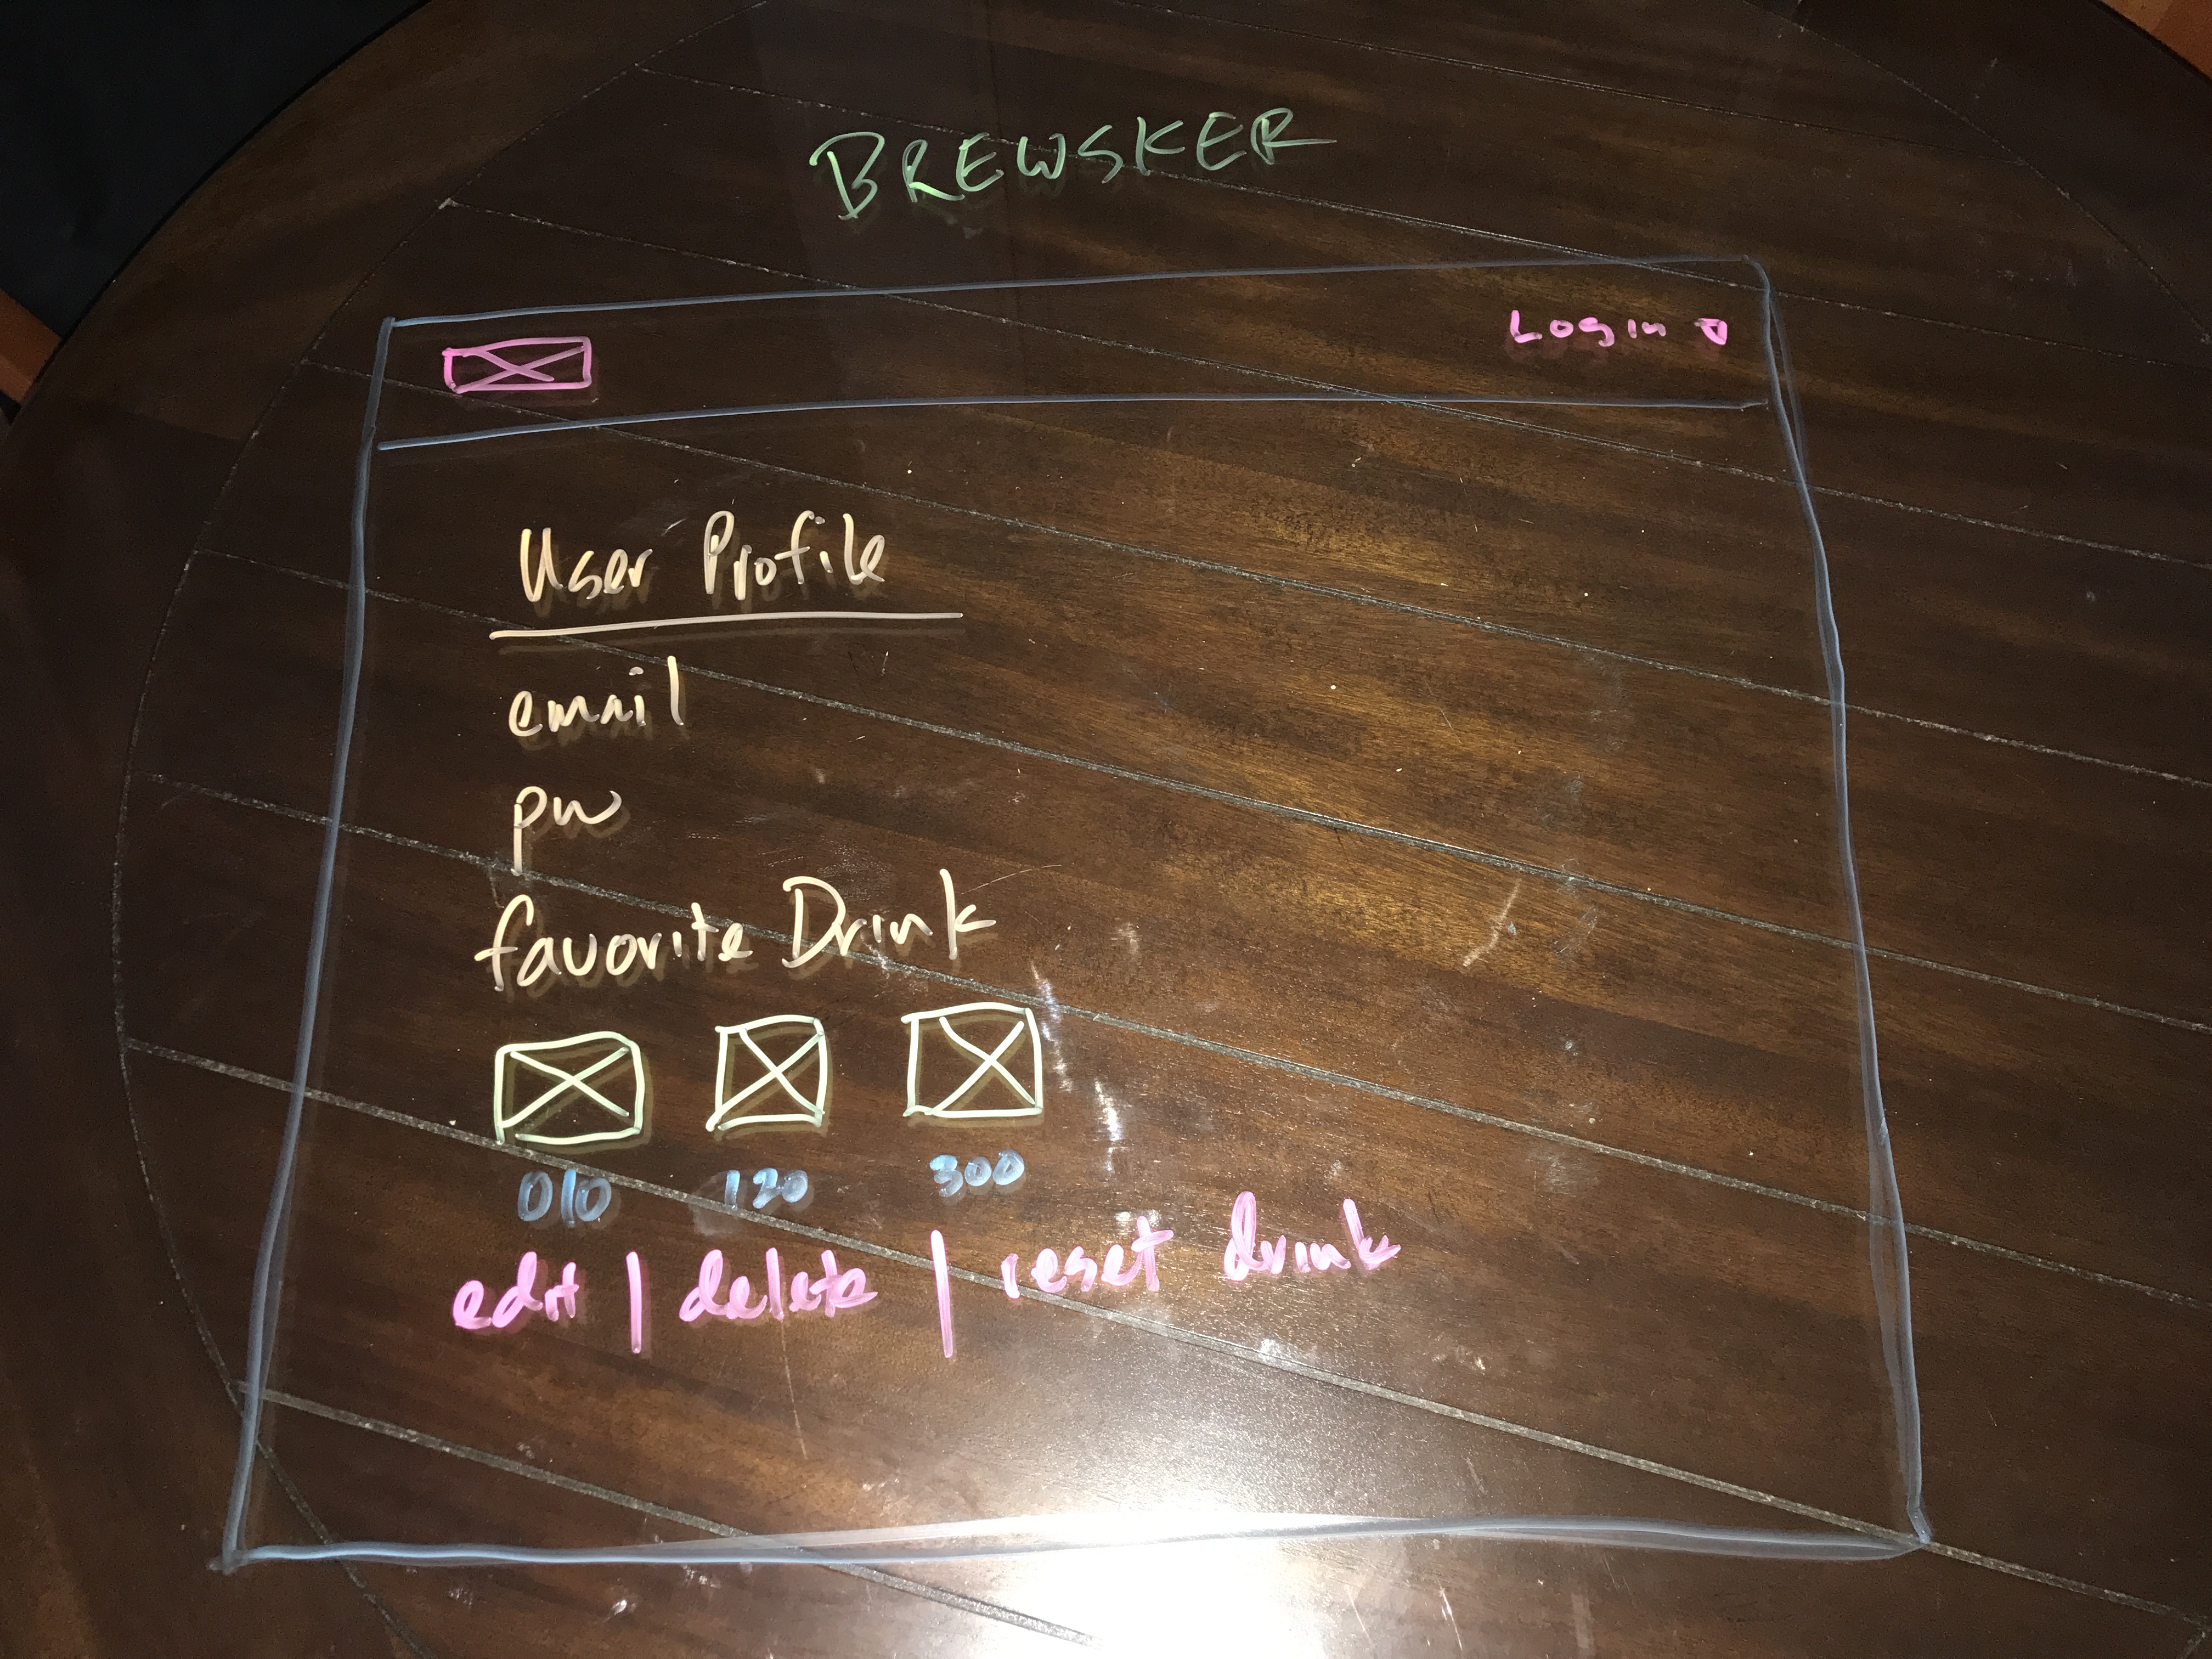 BREWSKER
Login
User Profile
email
pw
favorite Drink
010 120 300
edit | delete | reset drink